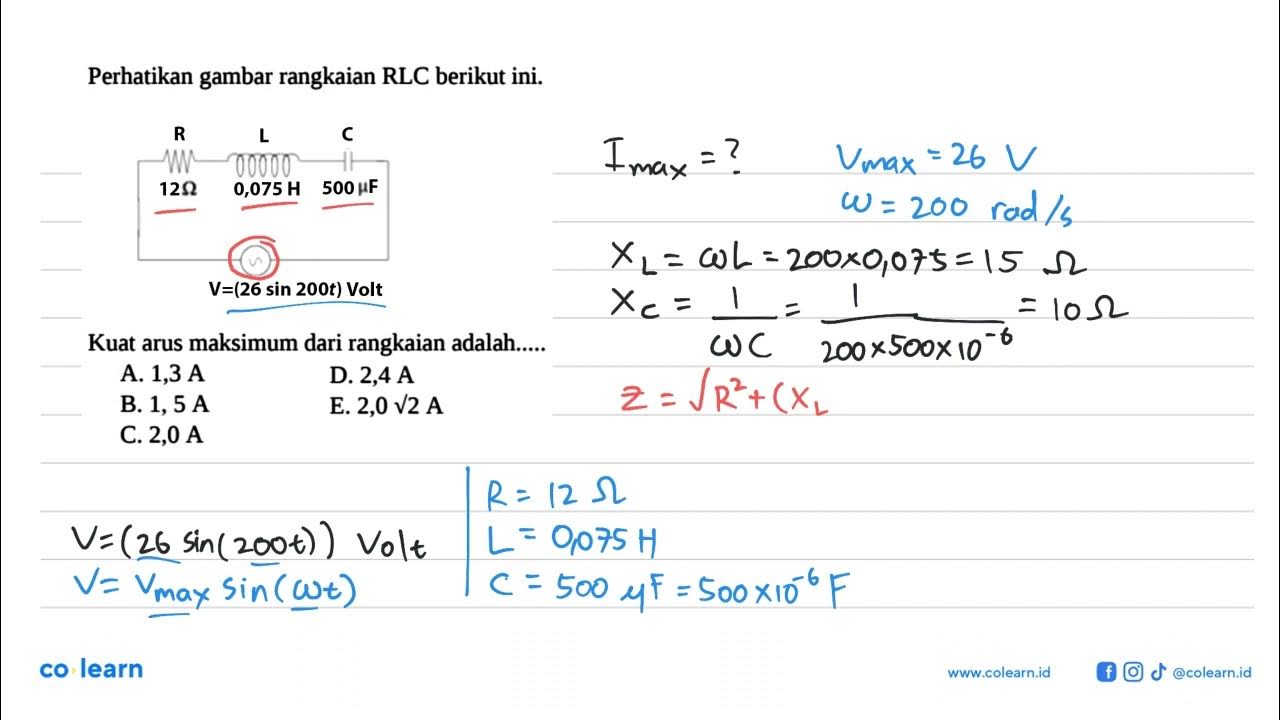 Perhatikan gambar rangkaian RLC berikut ini.
R L C
12Ω 0,075 H 500 μF
V=(26 sin 200t) Volt
Kuat arus maksimum dari rangkaian adalah.....
A. 1,3 A D. 2,4 A
B. 1, 5 A E. 2,0 √2 A
C. 2,0 A
I max = ? Vmax = 26 V
ω = 200 rad/s
X L = ωL = 200×0,075 = 15 Ω
X C = 1/ωC = 1/200×500×10⁻⁶ = 10 Ω
Z = √R² + (X L
V = (26 sin(200t)) Volt
V = Vmax sin(ωt)
R = 12 Ω
L = 0,075 H
C = 500 μF = 500×10⁻⁶ F
co·learn
www.colearn.id @colearn.id